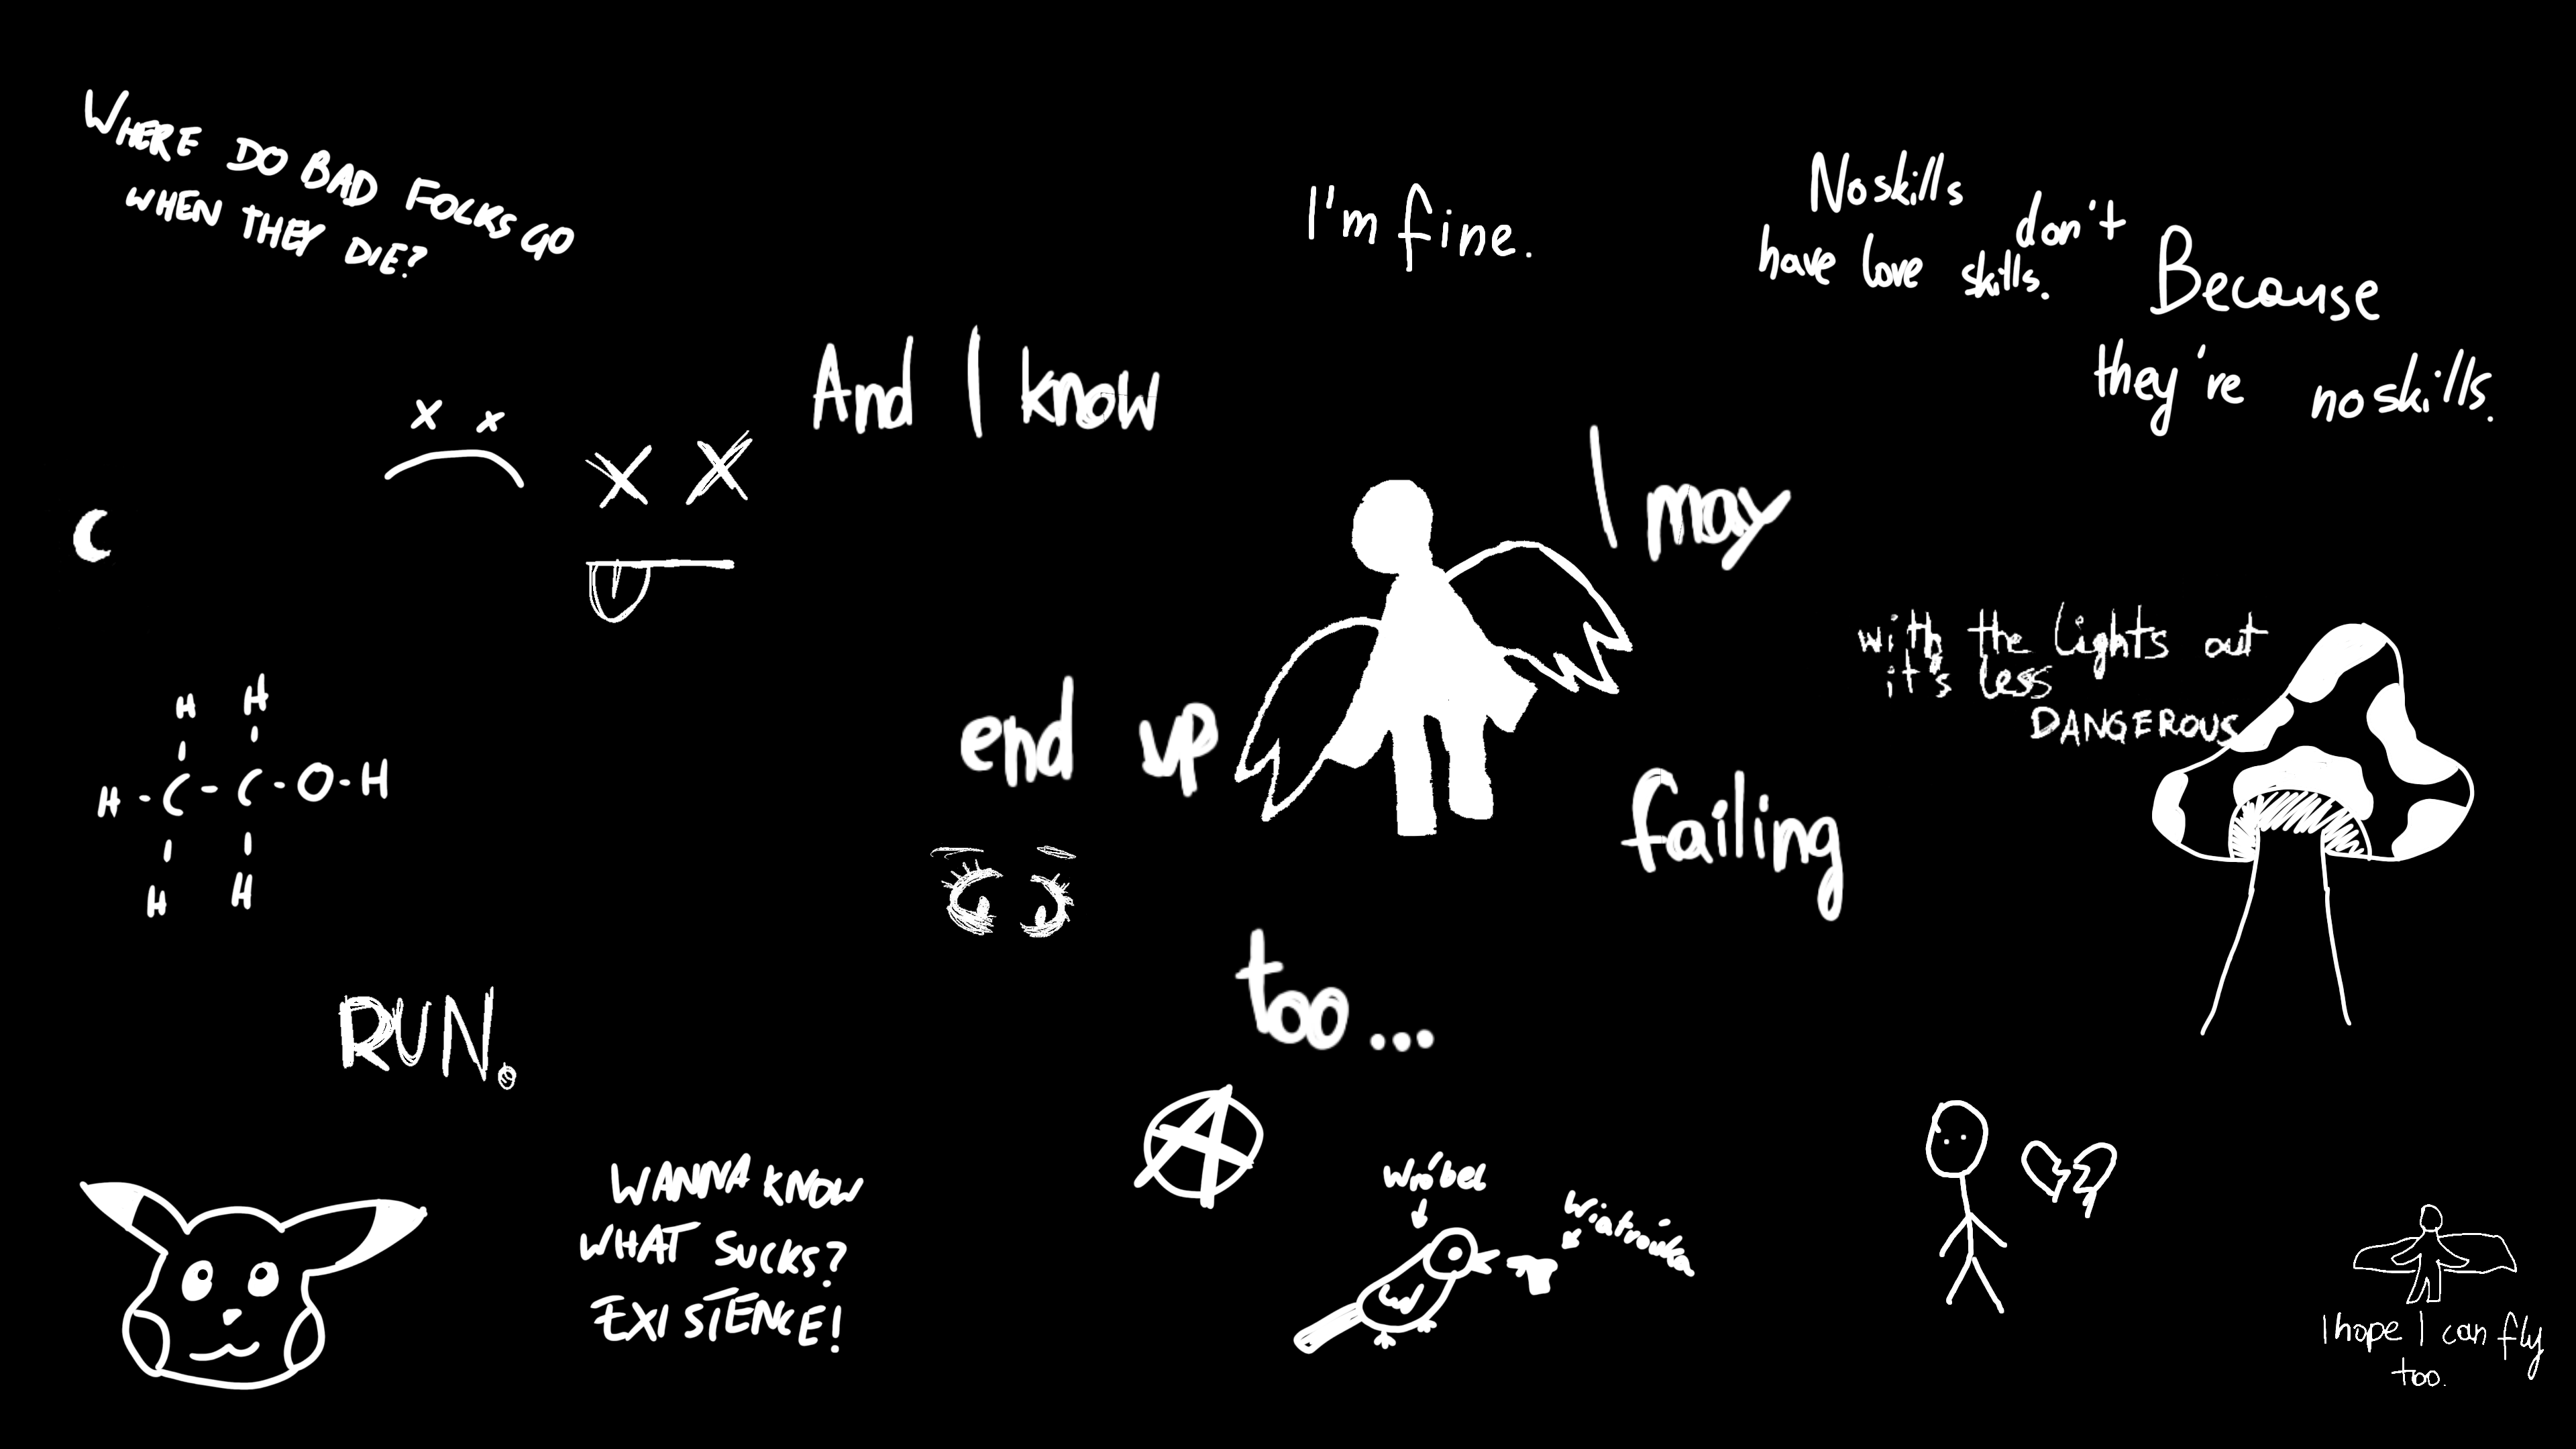 WHERE DO BAD FOLKS GO
WHEN THEY DIE?
I'm fine.
Noskills don't
have love skills.
Because
they're noskills.
And I know
I may
end up
failing
too...
with the lights out
it's less
DANGEROUS
H H
H - C - C - O - H
H H
RUN.
WANNA KNOW
WHAT SUCKS?
EXISTENCE!
A
Wróbel
Wiatrówka
I hope I can fly
too.